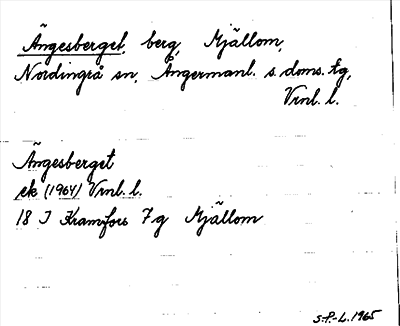 Ängesberget, berg, Mjällom,
Nordingrå sn, Ångermanl. s. doms. tg,
Vrnl. l.
Ängesberget
ek (1964) Vrnl. l.
18 J Kramfors 7g Mjällom
S.P.-L. 1965